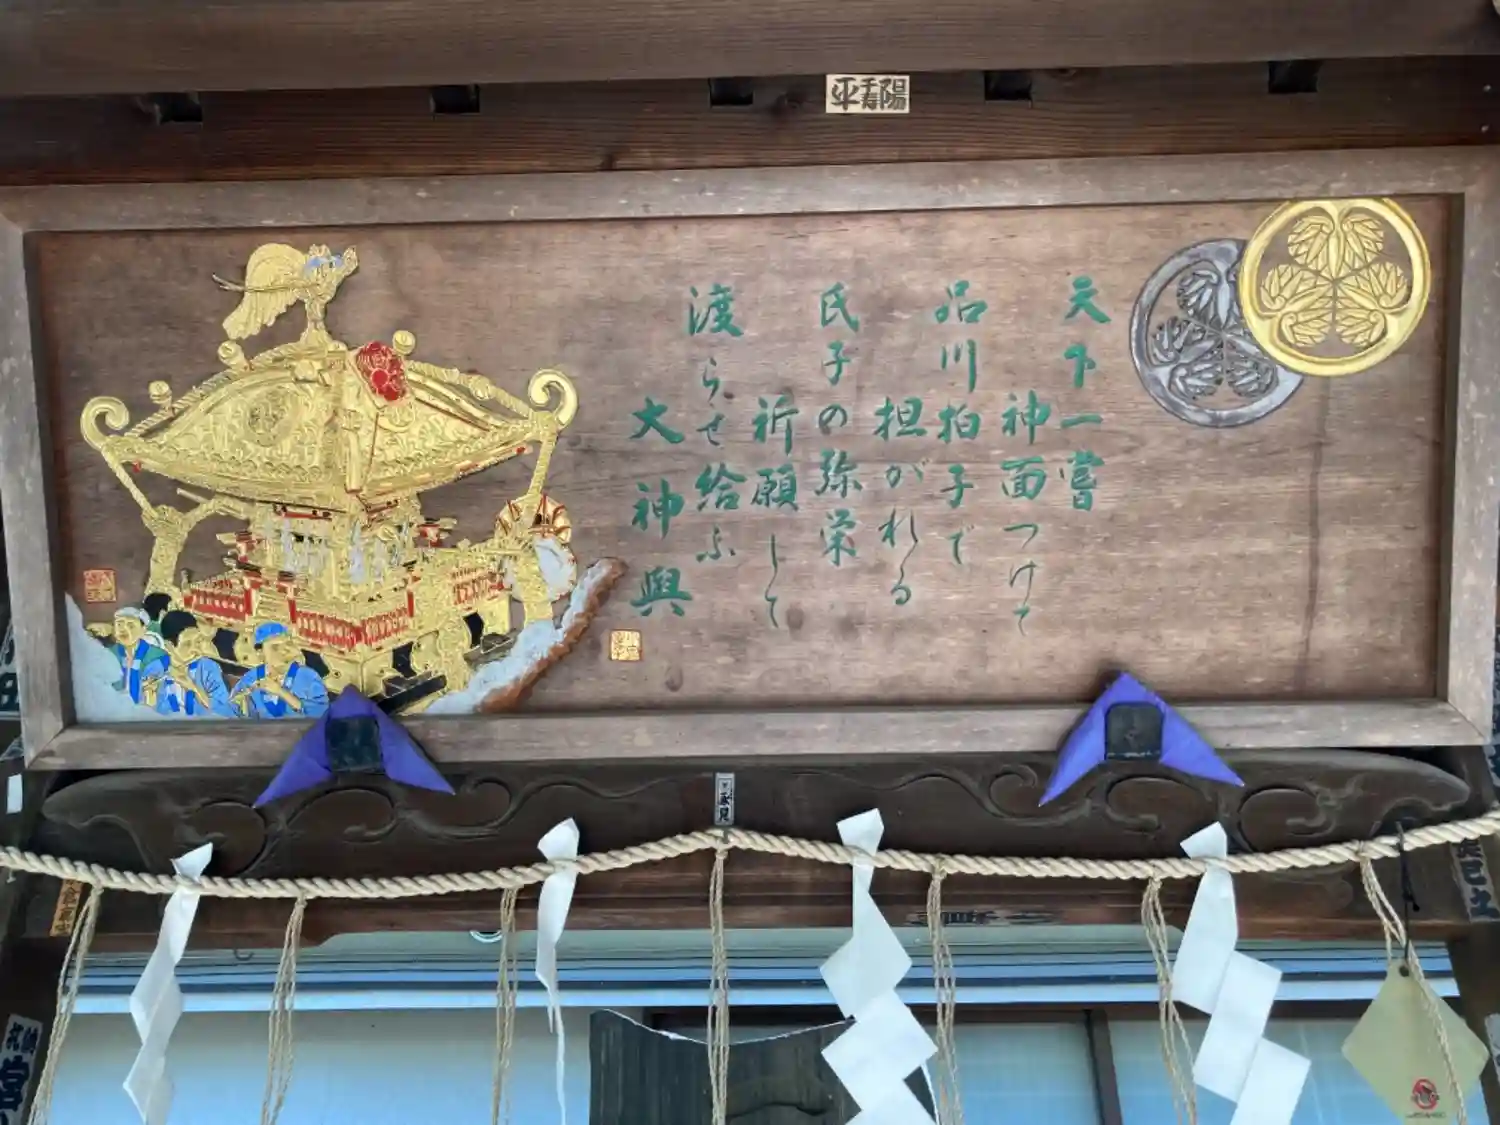 平 千寿 陽
天下一嘗
神面つけて
品川拍子で
担がれる
氏子の弥栄
祈願して
渡らせ給ふ
大神輿